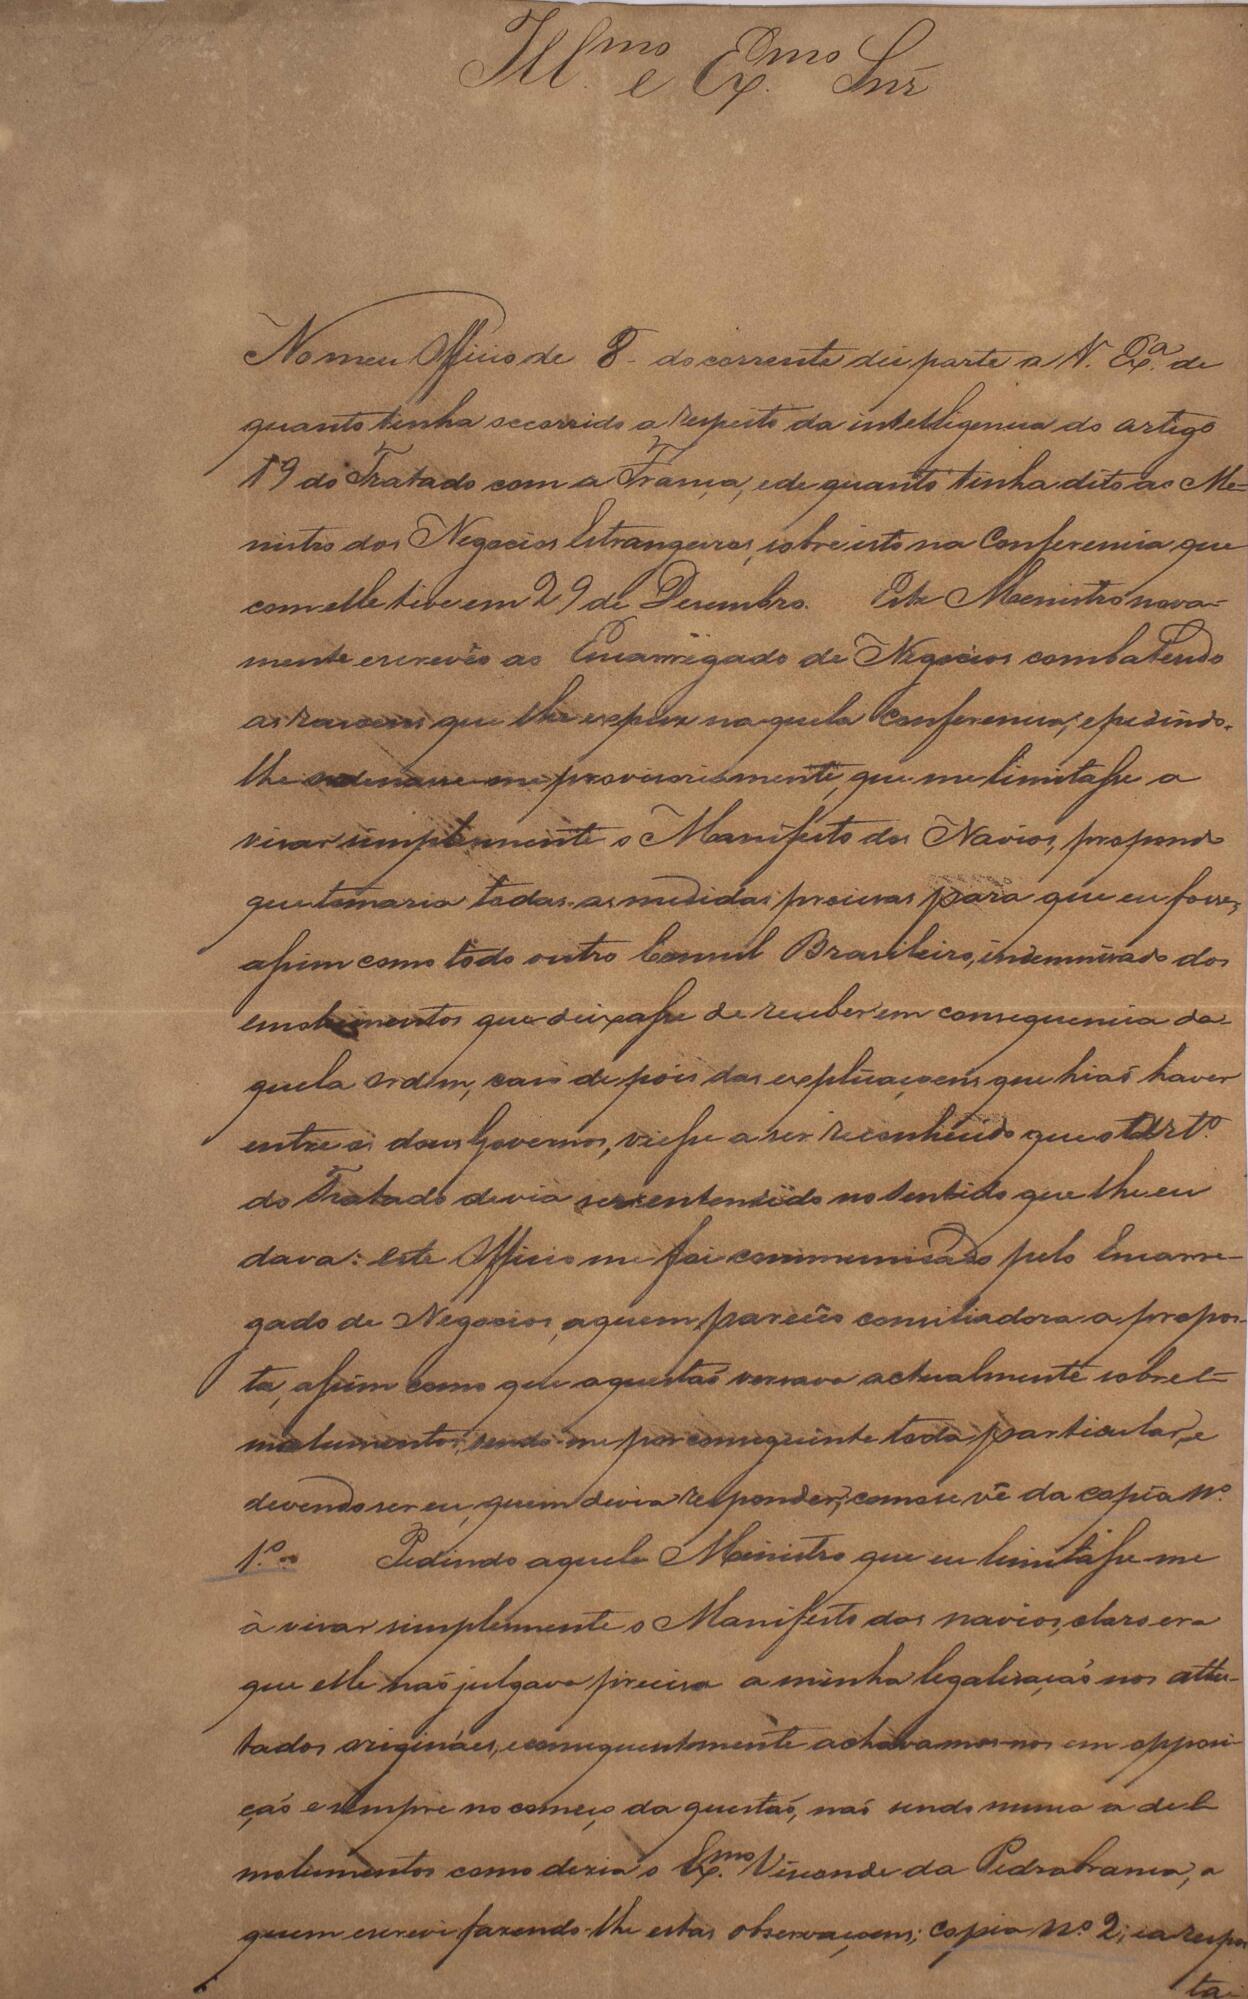 Ill.mo e Ex.mo Snr
No meu Officio de 8 do corrente dei parte a V. Ex.a de
quanto tinha occorrido a respeito da intelligencia do artigo
19 do Tratado com a França, e de quanto tinha dito ao Me=
nistro dos Negocios Estrangeiros, sobre isto na Conferencia que
com elle tive em 29 de Desembro. Este Menistro nova-
mente escrevêo ao Encarregado de Negocios combatendo
as rasoens que lhe expuz na quela Conferencia, e pedindo-
lhe ordenasse-me provisoriamente, que me limitasse a
visar simplesmente o Manifesto dos Navios, propondo
que tomaria todas as medidas precisas para que eu fosse,
assim como todo outro Consul Brasileiro, indemnisado dos
emolumentos que deixasse de receber em consequencia da-
quela ordem, caso depois das explicaçoens que hiaõ haver
entre os dous Governos, viesse a ser reconhecido que o Art.o
do Tratado devia ser entendido no sentido que lhe eu
dava: este Officio me foi communicado pelo Encarre-
gado de Negocios, a quem parecêo conciliadora a propos-
ta, assim como que a questaõ versava actualmente sobre E-
molumentos, sendo-me por conseguinte toda particular, e
devendo ser eu, quem devia responder, como se vê da copia N.o
1.o Pedindo aquele Menistro que eu limitasse-me
à visar simplesmente o Manifesto dos navios, claro era
que elle naõ julgava precisa a minha legalisaçaõ nos attes-
tados origináes, e consequentemente achavamos-nos em opposi-
çaõ e sempre no começo da questaõ, naõ sendo nunca a de E-
molumentos como dezia o Ex.mo Visconde da Pedrabranca, a
quem escrevi fazendo-lhe estas observaçoens; copia N.o 2; e a respos
ta